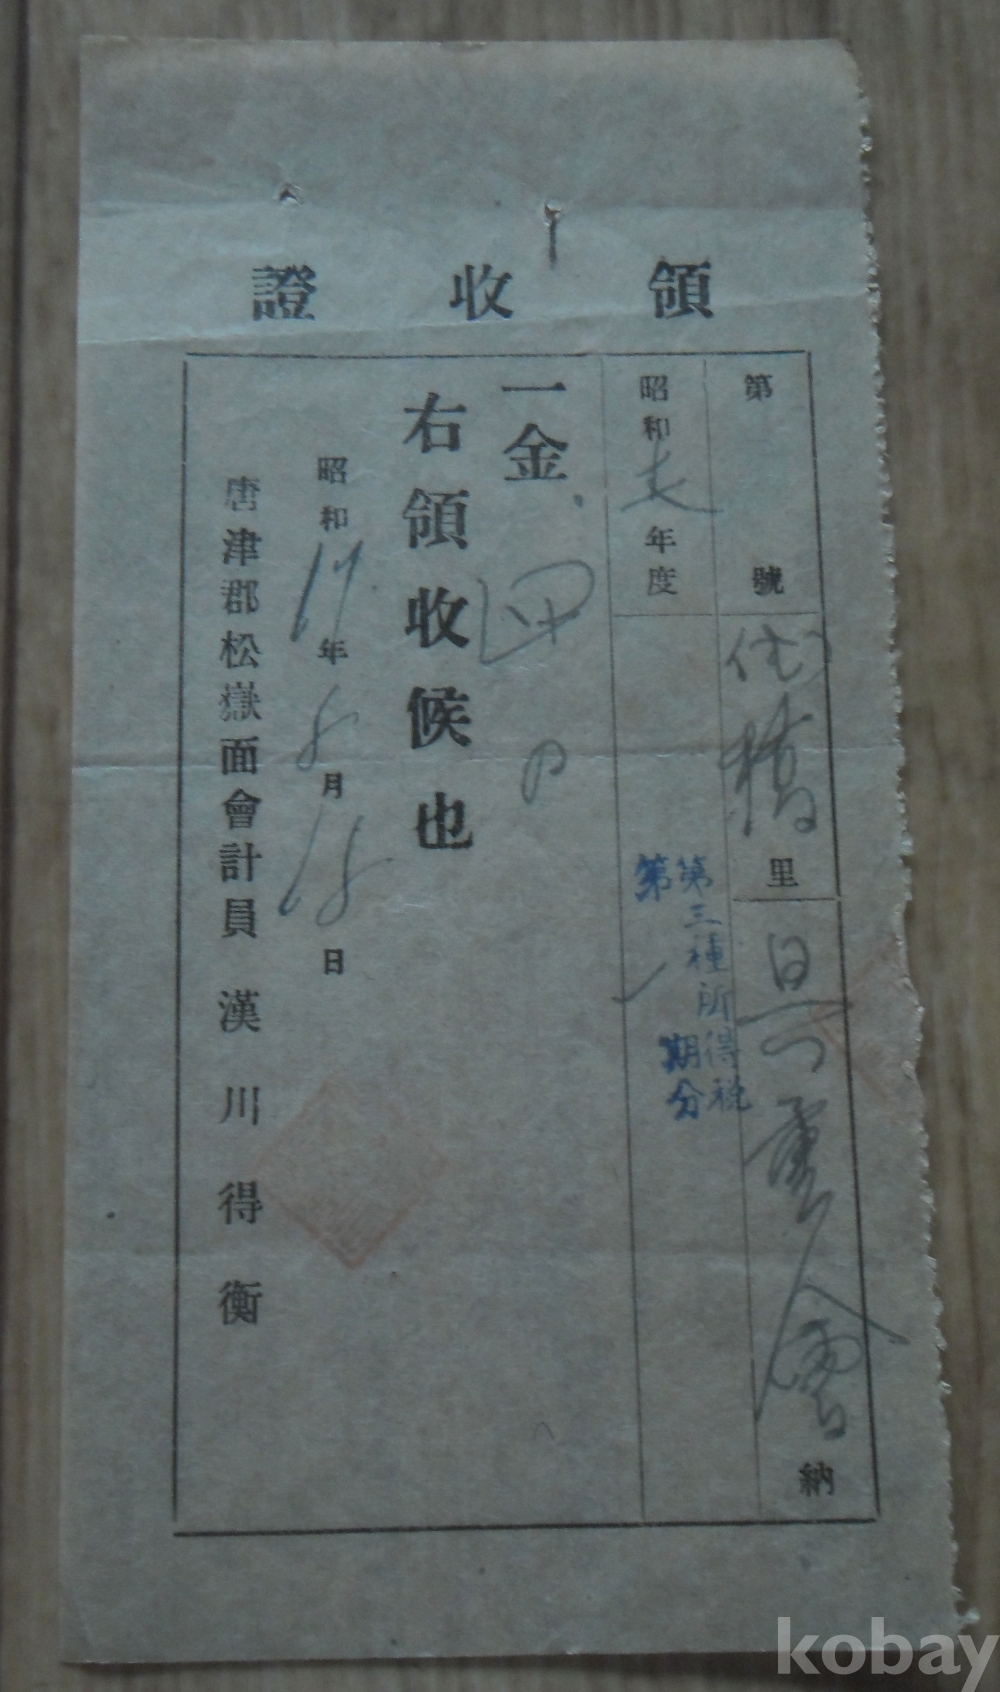 領收證
第 號
里 納
昭和 年度
第三種所得税
第一期分
一金 四円
右領收候也
昭和17年8月18日
唐津郡松嶽面會計員 漢川得衡
kobay